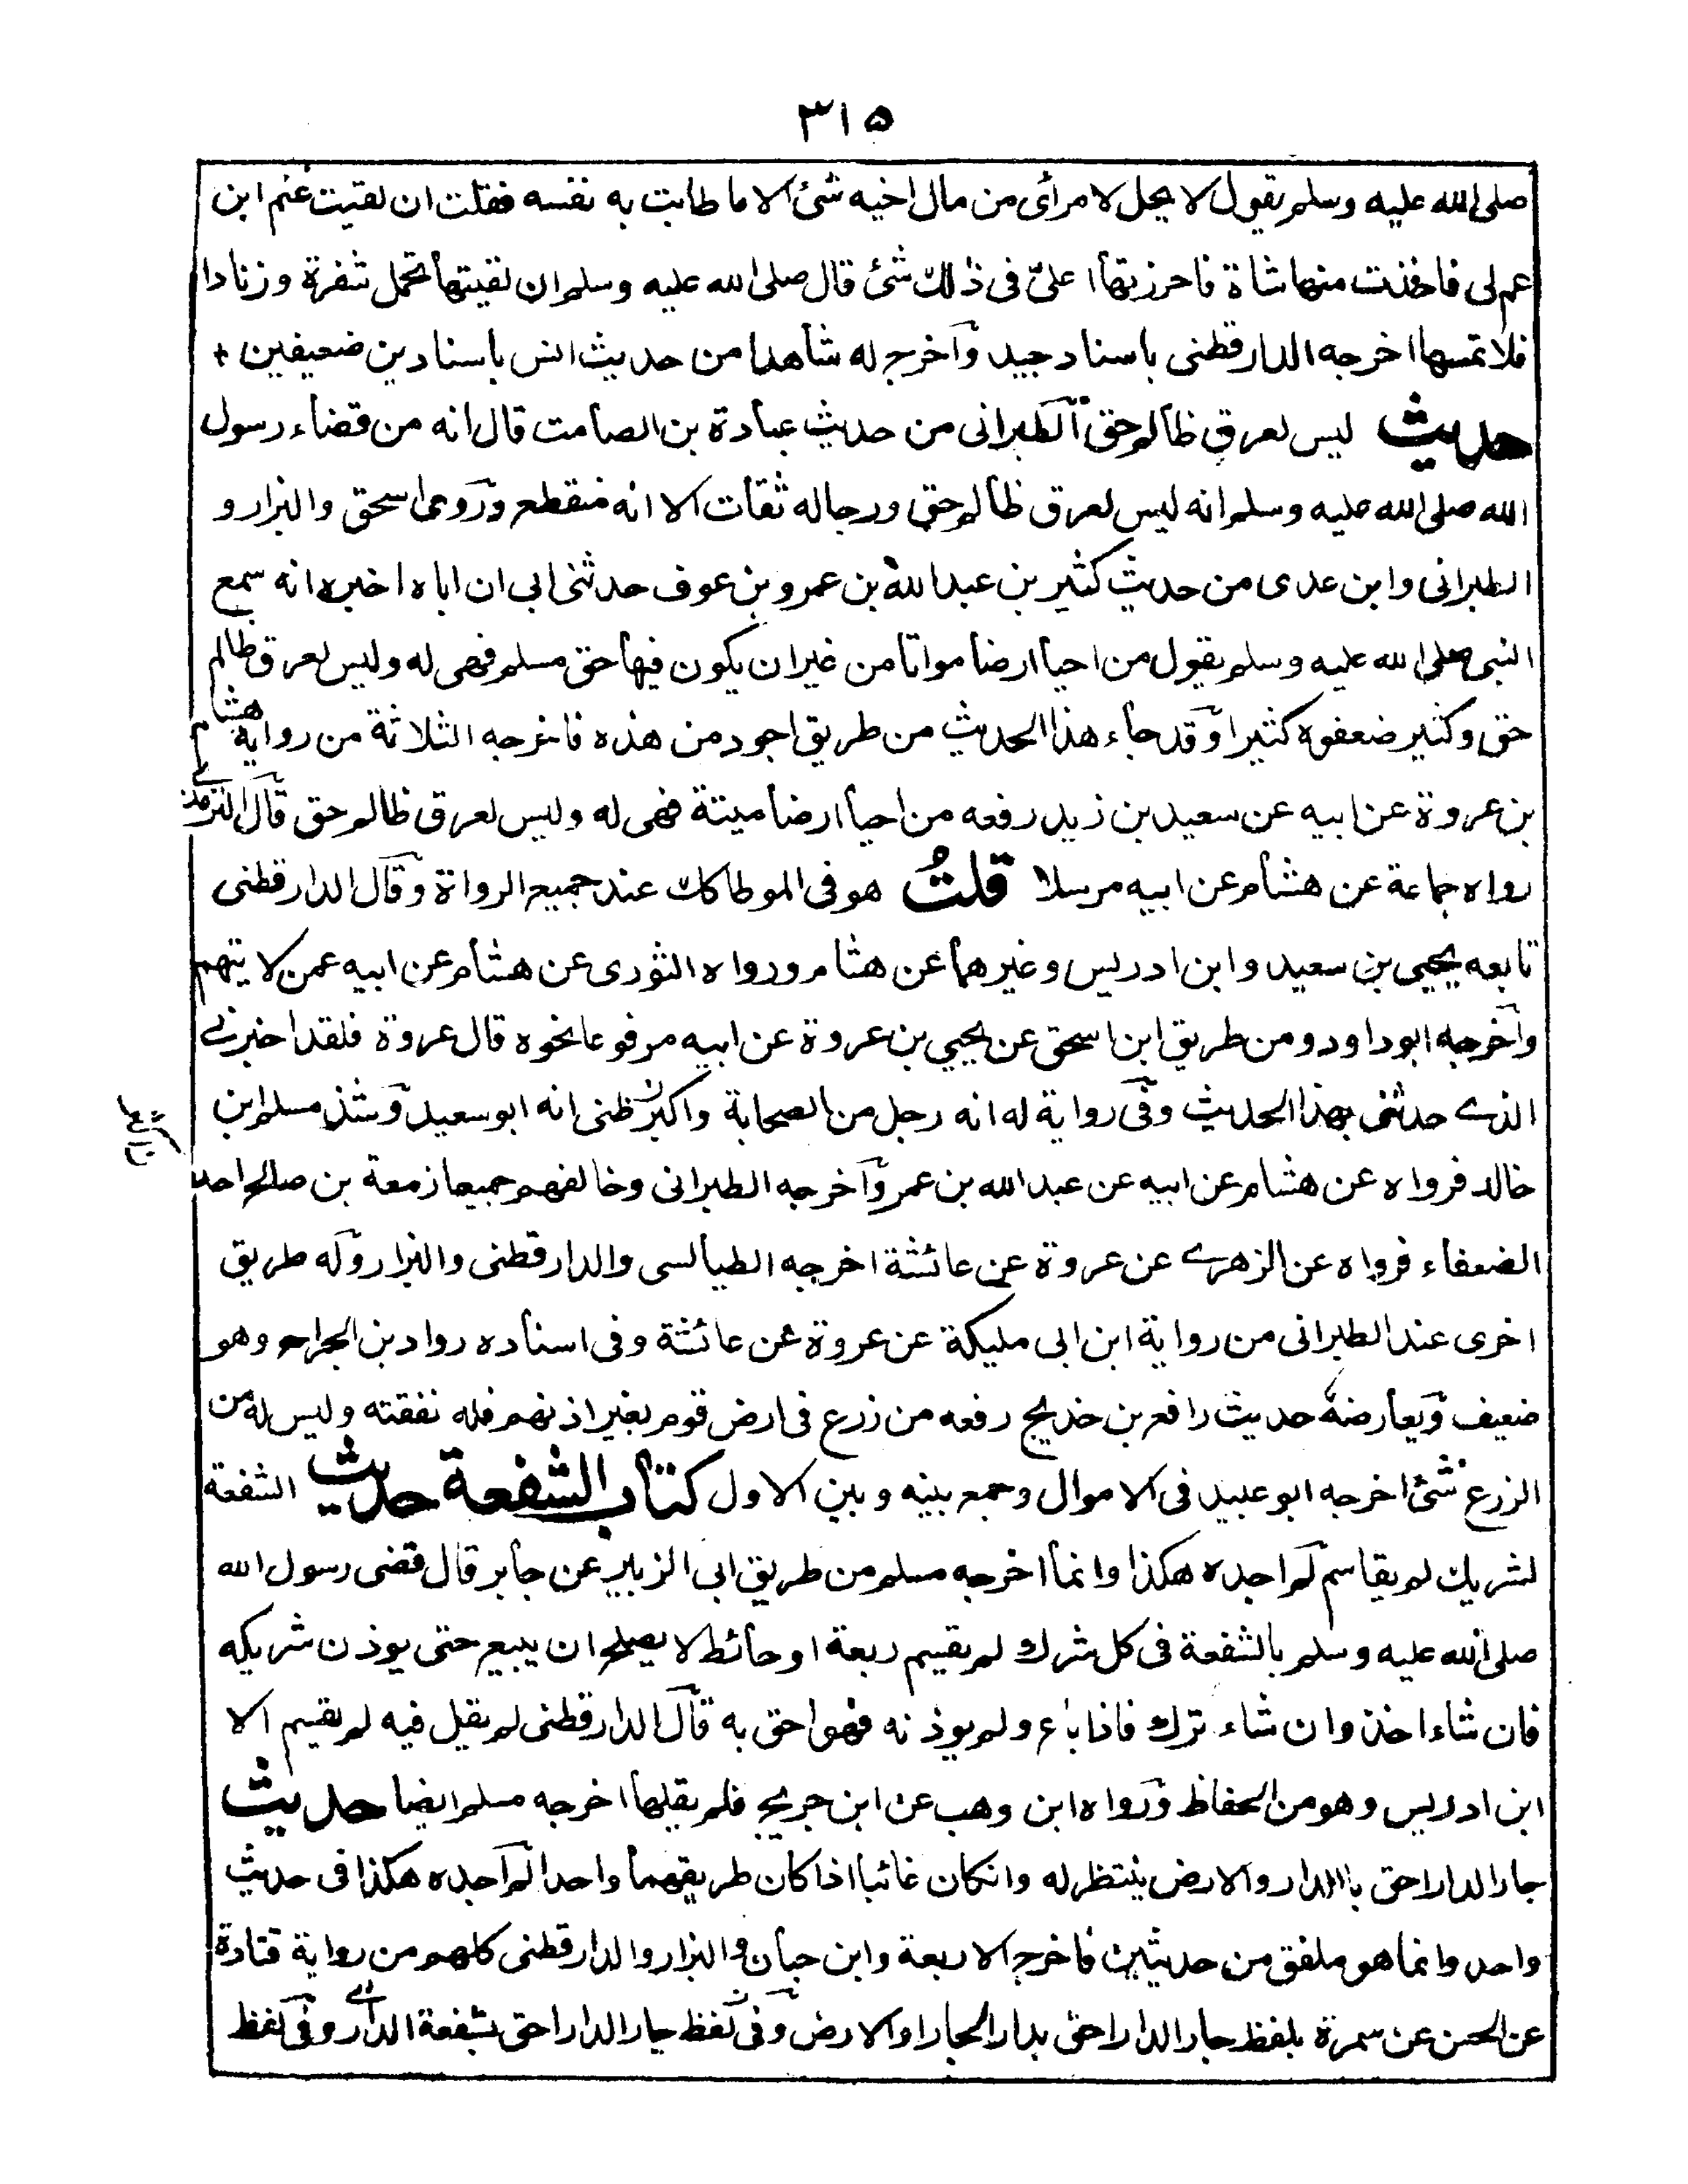 ٣١٥
صلى الله عليه وسلم يقول لا يحل لامرأى من مال اخيه شئ الا ما طابت به نفسه فقلت ان لقيت غنم ابن
عم لى فاخذت منها شاة فاحرزتها ا علىّ فى ذلك شئ قال صلى الله عليه وسلم ان لقيتها تحمل شفرة وزنادا
فلا تمسها اخرجه الدارقطنى باسناد جيد وآخرج له شاهدا من حديث انس باسنادين ضعيفين +
حديث ليس لعرق ظالم حق الطبرانى من حديث عبادة بن الصامت قال انه من قضاء رسول
الله صلى الله عليه وسلم انه ليس لعرق ظالم حق ورجاله ثقات الا انه منقطع وروى اسحق والبزار و
الطبرانى وابن عدى من حديث كثير بن عبد الله بن عمرو بن عوف حدثنى ابى ان اباه اخبره انه سمع
النبى صلى الله عليه وسلم يقول من احيا ارضا مواتا من غير ان يكون فيها حق مسلم فهى له وليس لعرق ظالم
حق وكثير ضعفوه كثيرا وقد جاء هذا الحديث من طريق اجود من هذه فاخرجه الثلاثة من رواية هشام
بن عروة عن ابيه عن سعيد بن زيد رفعه من احيا ارضا ميتة فهى له وليس لعرق ظالم حق قال الترمذے
رواه جماعة عن هشام عن ابيه مرسلا قلتُ هو فى الموطا كك عند جميع الرواة وقال الدارقطنى
تابعه يحيى بن سعيد وابن ادريس وغيرهما عن هشام ورواه الثورى عن هشام عن ابيه عمن لا يتهم
وآخرجه ابو داود ومن طريق ابن اسحق عن يحيي بن عروة عن ابيه مرفوعا نحوه قال عروة فلقد اخبرنے
الذے حدثنى بهذا الحديث وفى رواية له انه رجل من الصحابة واكبر ظنى انه ابو سعيد وشذ مسلم ابن
خالد فرواه عن هشام عن ابيه عن عبد الله بن عمر وآخرجه الطبرانى وخالفهم جميعا زمعة بن صالح احد
الضعفاء فرواه عن الزهرے عن عروة عن عائشة اخرجه الطيالسى والدارقطنى والبزار وله طريق
اخرى عند الطبرانى من رواية ابن ابى مليكة عن عروة عن عائشة وفى اسناده رواد بن الجراح وهو
ضعيف ويعارضه حديث رافع بن خديج رفعه من زرع فى ارض قوم بغير اذنهم فله نفقته وليس له من
الزرع شئ اخرجه ابو عبيد فى الاموال وجمع بينه وبين الاول كتاب الشفعة حديث الشفعة
لشريك لم يقاسم لم اجده هكذا وانما اخرجه مسلم من طريق ابى الزبير عن جابر قال قضى رسول الله
صلى الله عليه وسلم بالشفعة فى كل شرك لم يقسم ربعة او حائط لا يصلح ان يبيع حتى يوذن شريكه
فان شاء اخذ وان شاء ترك فاذا باع ولم يوذنه فهو احق به قال الدارقطنى لم يقل فيه لم يقسم الا
ابن ادريس وهو من الحفاظ ورواه ابن وهب عن ابن جريج فلم يقلها اخرجه مسلم ايضا حديث
جار الدار احق باالدار والارض ينتظر له وانكان غائبا اذا كان طريقهما واحدا لم آجده هكذا فى حديث
واحد وانما هو ملفق من حديثين فاخرج الاربعة وابن حبان والبزار والدارقطنى كلهم من رواية قتادة
عن الحسن عن سمرة بلفظ جار الدار احق بدار الجار اوالارض وفى لفظ جار الدار احق بشفعة الدار وفى لفظ